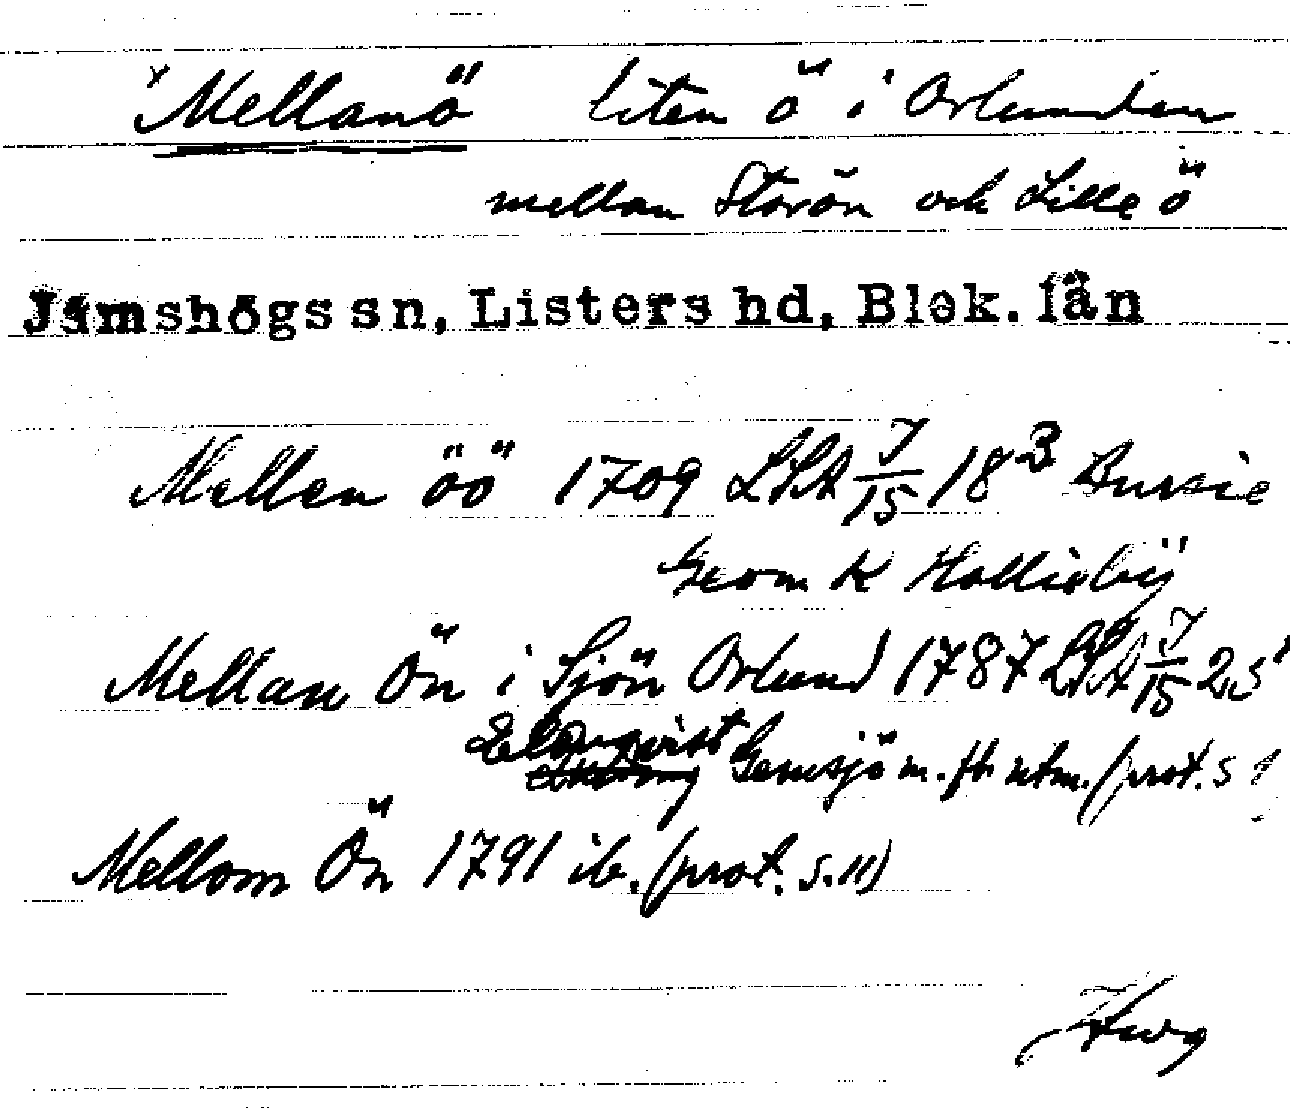 "Mellanö liten ö i Orlunden
mellan Storön och Lille ö
Jämshögs sn, Listers hd, Blek. län
Mellen öö 1709 LSA 7/15 18³ Bursie
Geom K Holliebÿ
Mellan Ön i Sjön Orlund 1787 LSA 7/15 25¹
Gemsjö m. fl. utm. (prot. s
Mellom Ön 1791 ib. (prot. s. 11)